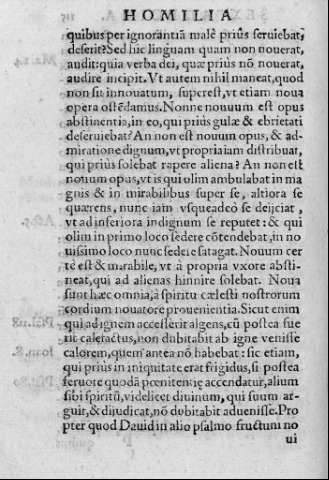 HOMILIA
quibus per ignorantiã malè priùs seruiebat,
deserit? Sed hic linguam quam non nouerat,
audit: quia verba dei, quæ priùs nõ nouerat,
audire incipit. Vt autem nihil maneat, quod
non sit innouatum, superest, vt etiam noua
opera ostẽdamus. Nonne nouuum est opus
abstinentia, in eo, qui priùs gulæ & ebrietati
deseruiebat? An non est nouum opus, & ad-
miratione dignum, vt propria iam distribuat,
qui priùs solebat rapere aliena? An non est
nouum opus, vt is qui olim ambulabat in ma
gnis & in mirabilibus super se, altiora se
quærens, nunc iam vsqueadeò se deijciat,
vt ad inferiora indignum se reputet: & qui
olim in primo loco sedere cõtendebat, in no
uissimo loco nunc sedere satagat. Nouum cer
tè est & mirabile, vt à propria vxore absti-
neat, qui ad alienas hinnire solebat. Noua
sunt hæc omnia, à spiritu cælesti nostrorum
cordium nouatore prouenientia. Sicut enim
qui ad ignem accesserit algens, cũ postea fue
rit calefactus, non dubitabit ab igne venisse
calorem, quem antea nõ habebat: sic etiam,
qui priùs in iniquitate erat frigidus, si postea
feruore quodã pœnitentię accendatur, alium
sibi spiritũ, videlicet diuinum, qui suum ar-
guit, & dijudicat, nõ dubitabit aduenisse. Pro
pter quod Dauid in alio psalmo fructum no
ui